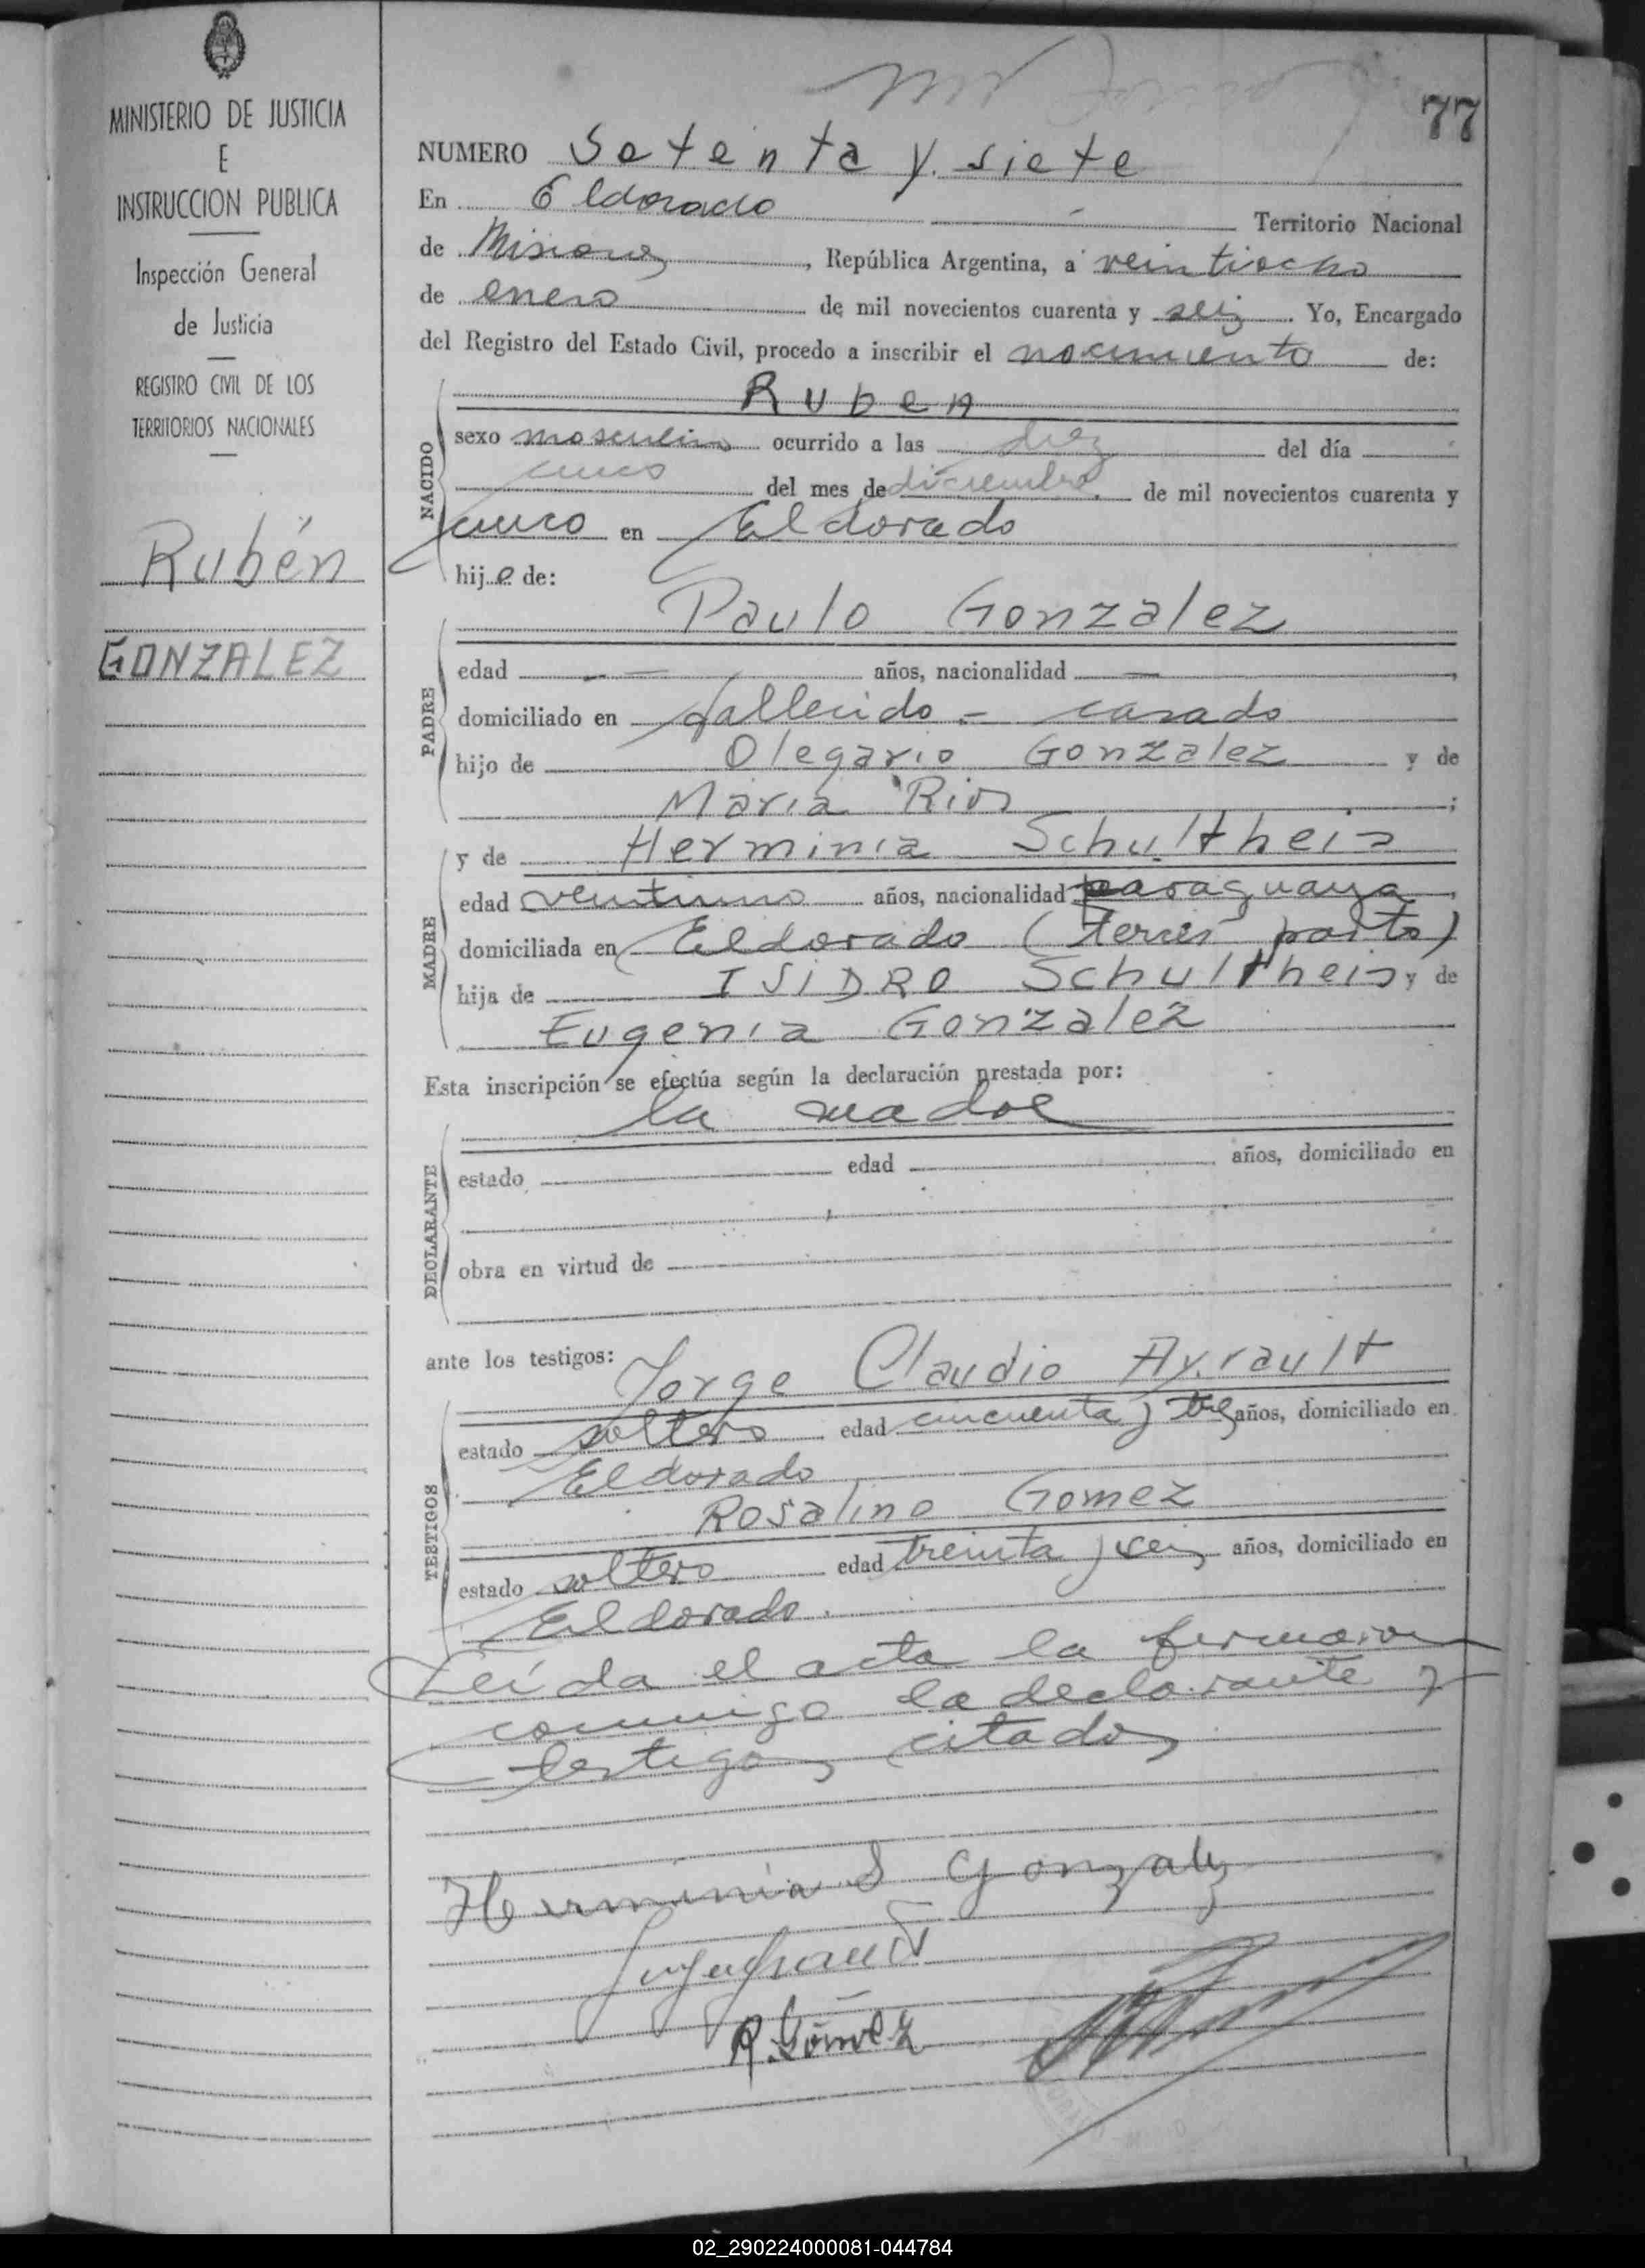 MINISTERIO DE JUSTICIA
E
INSTRUCCION PUBLICA
Inspección General
de Justicia
REGISTRO CIVIL DE LOS
TERRITORIOS NACIONALES
Rubén
GONZALEZ
77
NUMERO Setenta y siete
En Eldorado Territorio Nacional
de Misiones, República Argentina, a veintiocho
de enero de mil novecientos cuarenta y seis. Yo, Encargado
del Registro del Estado Civil, procedo a inscribir el nacimiento de:
Ruben
NACIDO
sexo masculino ocurrido a las diez del día
cinco del mes de diciembre de mil novecientos cuarenta y
cinco en Eldorado
hijo de:
Paulo Gonzalez
PADRE
edad — años, nacionalidad —,
domiciliado en fallecido - casado
hijo de Olegario Gonzalez y de
Maria Rios;
y de Herminia Schultheis
MADRE
edad veintiuno años, nacionalidad paraguaya,
domiciliada en Eldorado (tercer parto)
hija de ISIDRO Schultheis y de
Eugenia Gonzalez
Esta inscripción se efectúa según la declaración prestada por:
la madre
DECLARANTE
estado edad años, domiciliado en
obra en virtud de
ante los testigos:
Jorge Claudio Ayrault
TESTIGOS
estado soltero edad cincuenta y tres años, domiciliado en
Eldorado
Rosalino Gomez
estado soltero edad treinta y seis años, domiciliado en
Eldorado.
Leída el acta la firmaron
conmigo la declarante y
testigos citados
Herminia S Gonzalez
R. Gómez
02_290224000081-044784